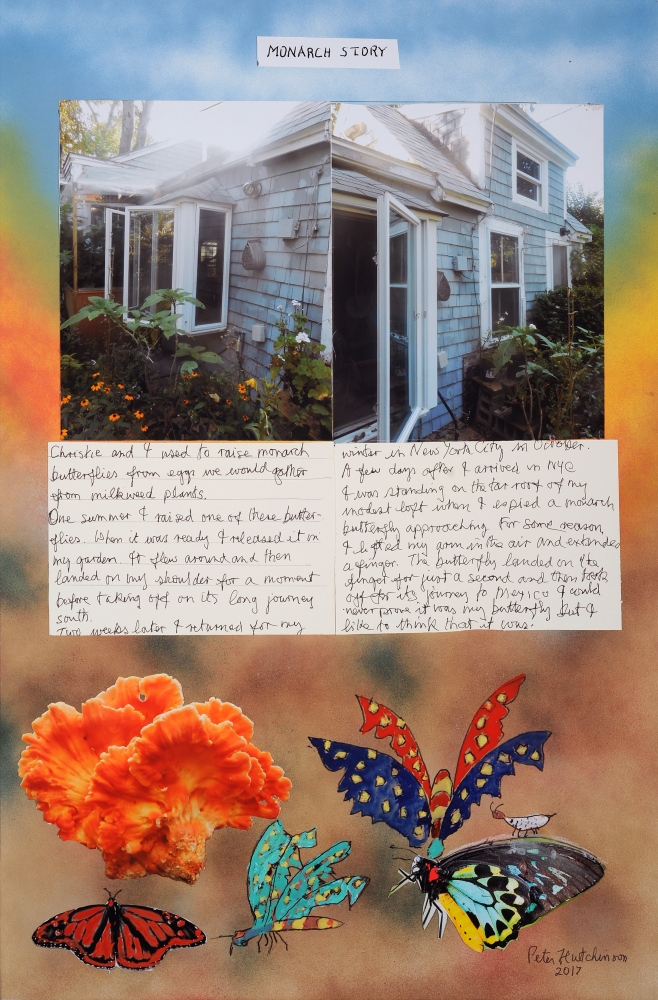 MONARCH STORY
Chriskie and I used to raise monarch
butterflies from eggs we would gather
from milkweed plants.
One summer I raised one of these butter-
flies. When it was ready I released it in
my garden. It flew around and then
landed on my shoulder for a moment
before taking off on its long journey
south.
Two weeks later I returned for my
winter in New York City in October.
A few days after I arrived in NYC
I was standing on the tar roof of my
modest loft when I espied a monarch
butterfly approaching. For some reason
I lifted my arm in the air and extended
a finger. The butterfly landed on the
finger for just a second and then took
off for its journey to Mexico I could
never prove it was my butterfly but I
like to think that it was.
Peter Hutchinson
2017